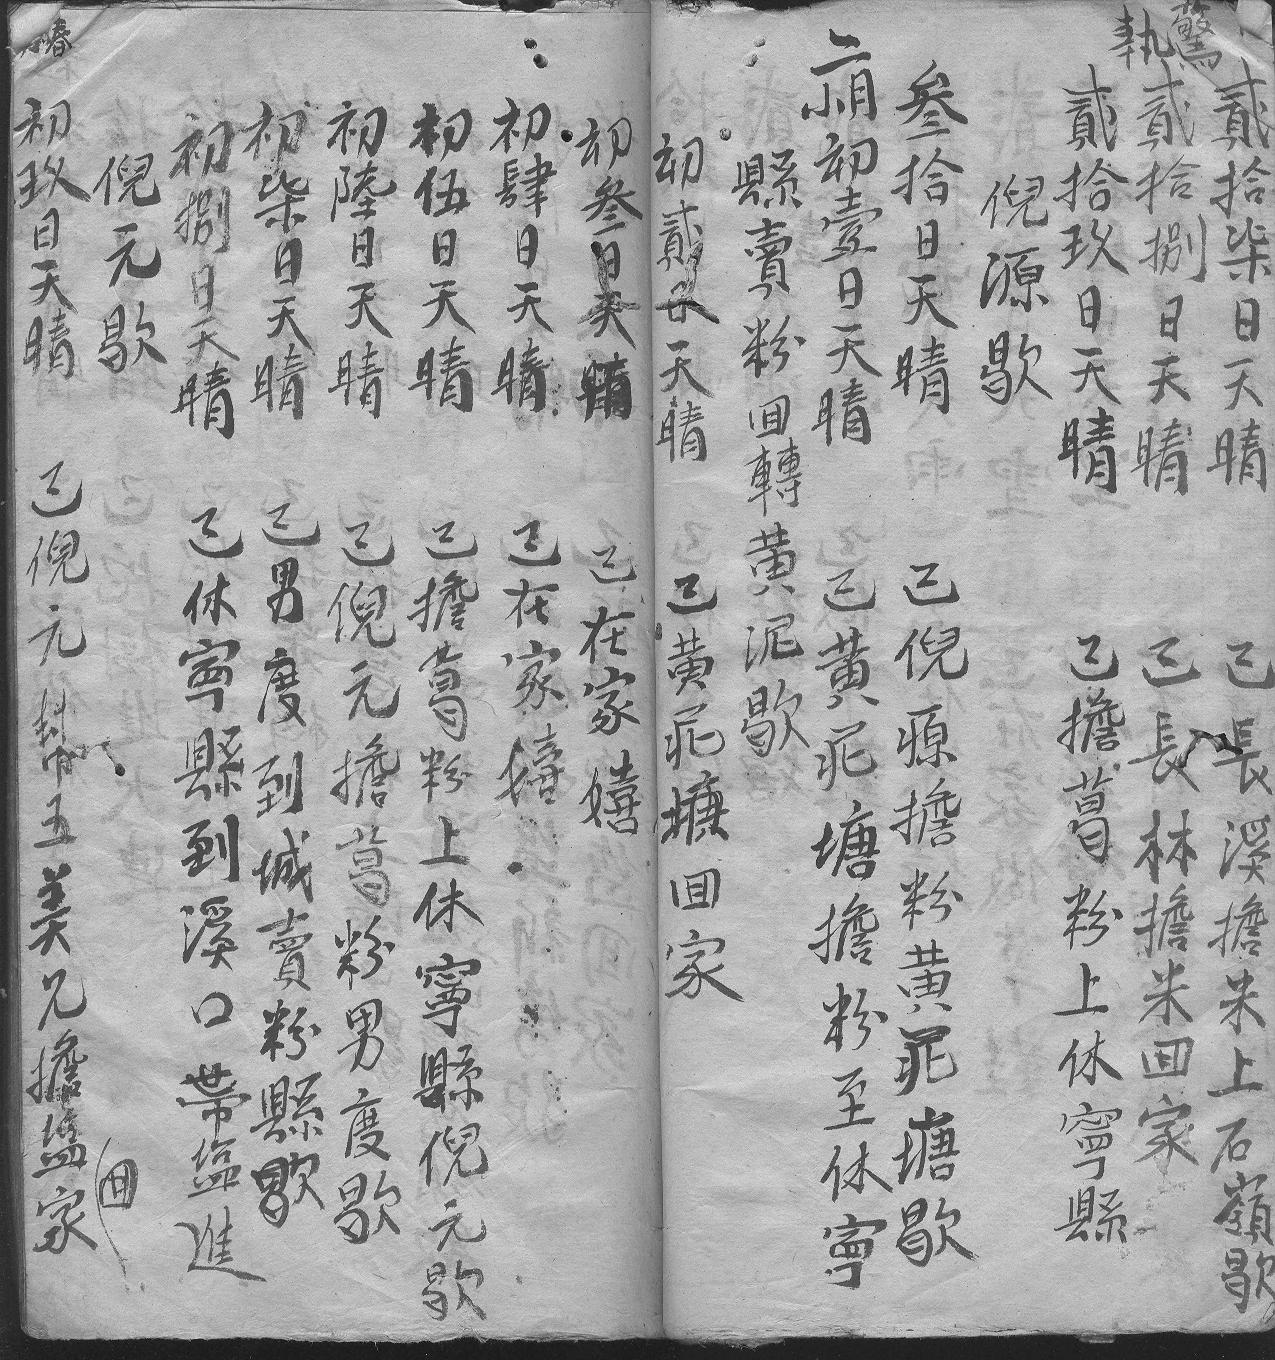 驚
執
貳拾柒日天晴 己長溪擔米上石嶺歇
貳拾捌日天晴 己長林擔米回家
貳拾玖日天晴 己擔葛粉上休寧縣
倪源歇
叁拾日天晴 己倪源擔粉黄坭塘歇
二月初壹日天晴 己黄坭塘擔粉至休寧
縣賣粉回轉黄泥歇
初貳日天晴 己黄坭塘回家
初叁日天晴 己在家嬉
初肆日天晴 己在家嬉
初伍日天晴 己擔葛粉上休寧縣倪元歇
初陸日天晴 己倪元擔葛粉男度歇
初柒日天晴 己男度到城賣粉縣歇
初捌日天晴 己休寧縣到溪口帶塩進
倪元歇
回
春
初玖日天晴 己倪元幇五美兄擔塩家